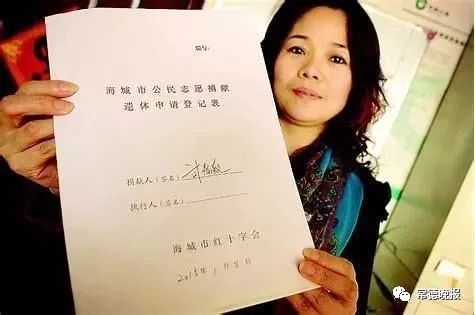 编号:
海城市公民志愿捐献
遗体申请登记表
捐献人(签名)
执行人(签名)
海城市红十字会
2015年1月8日
常德晚报